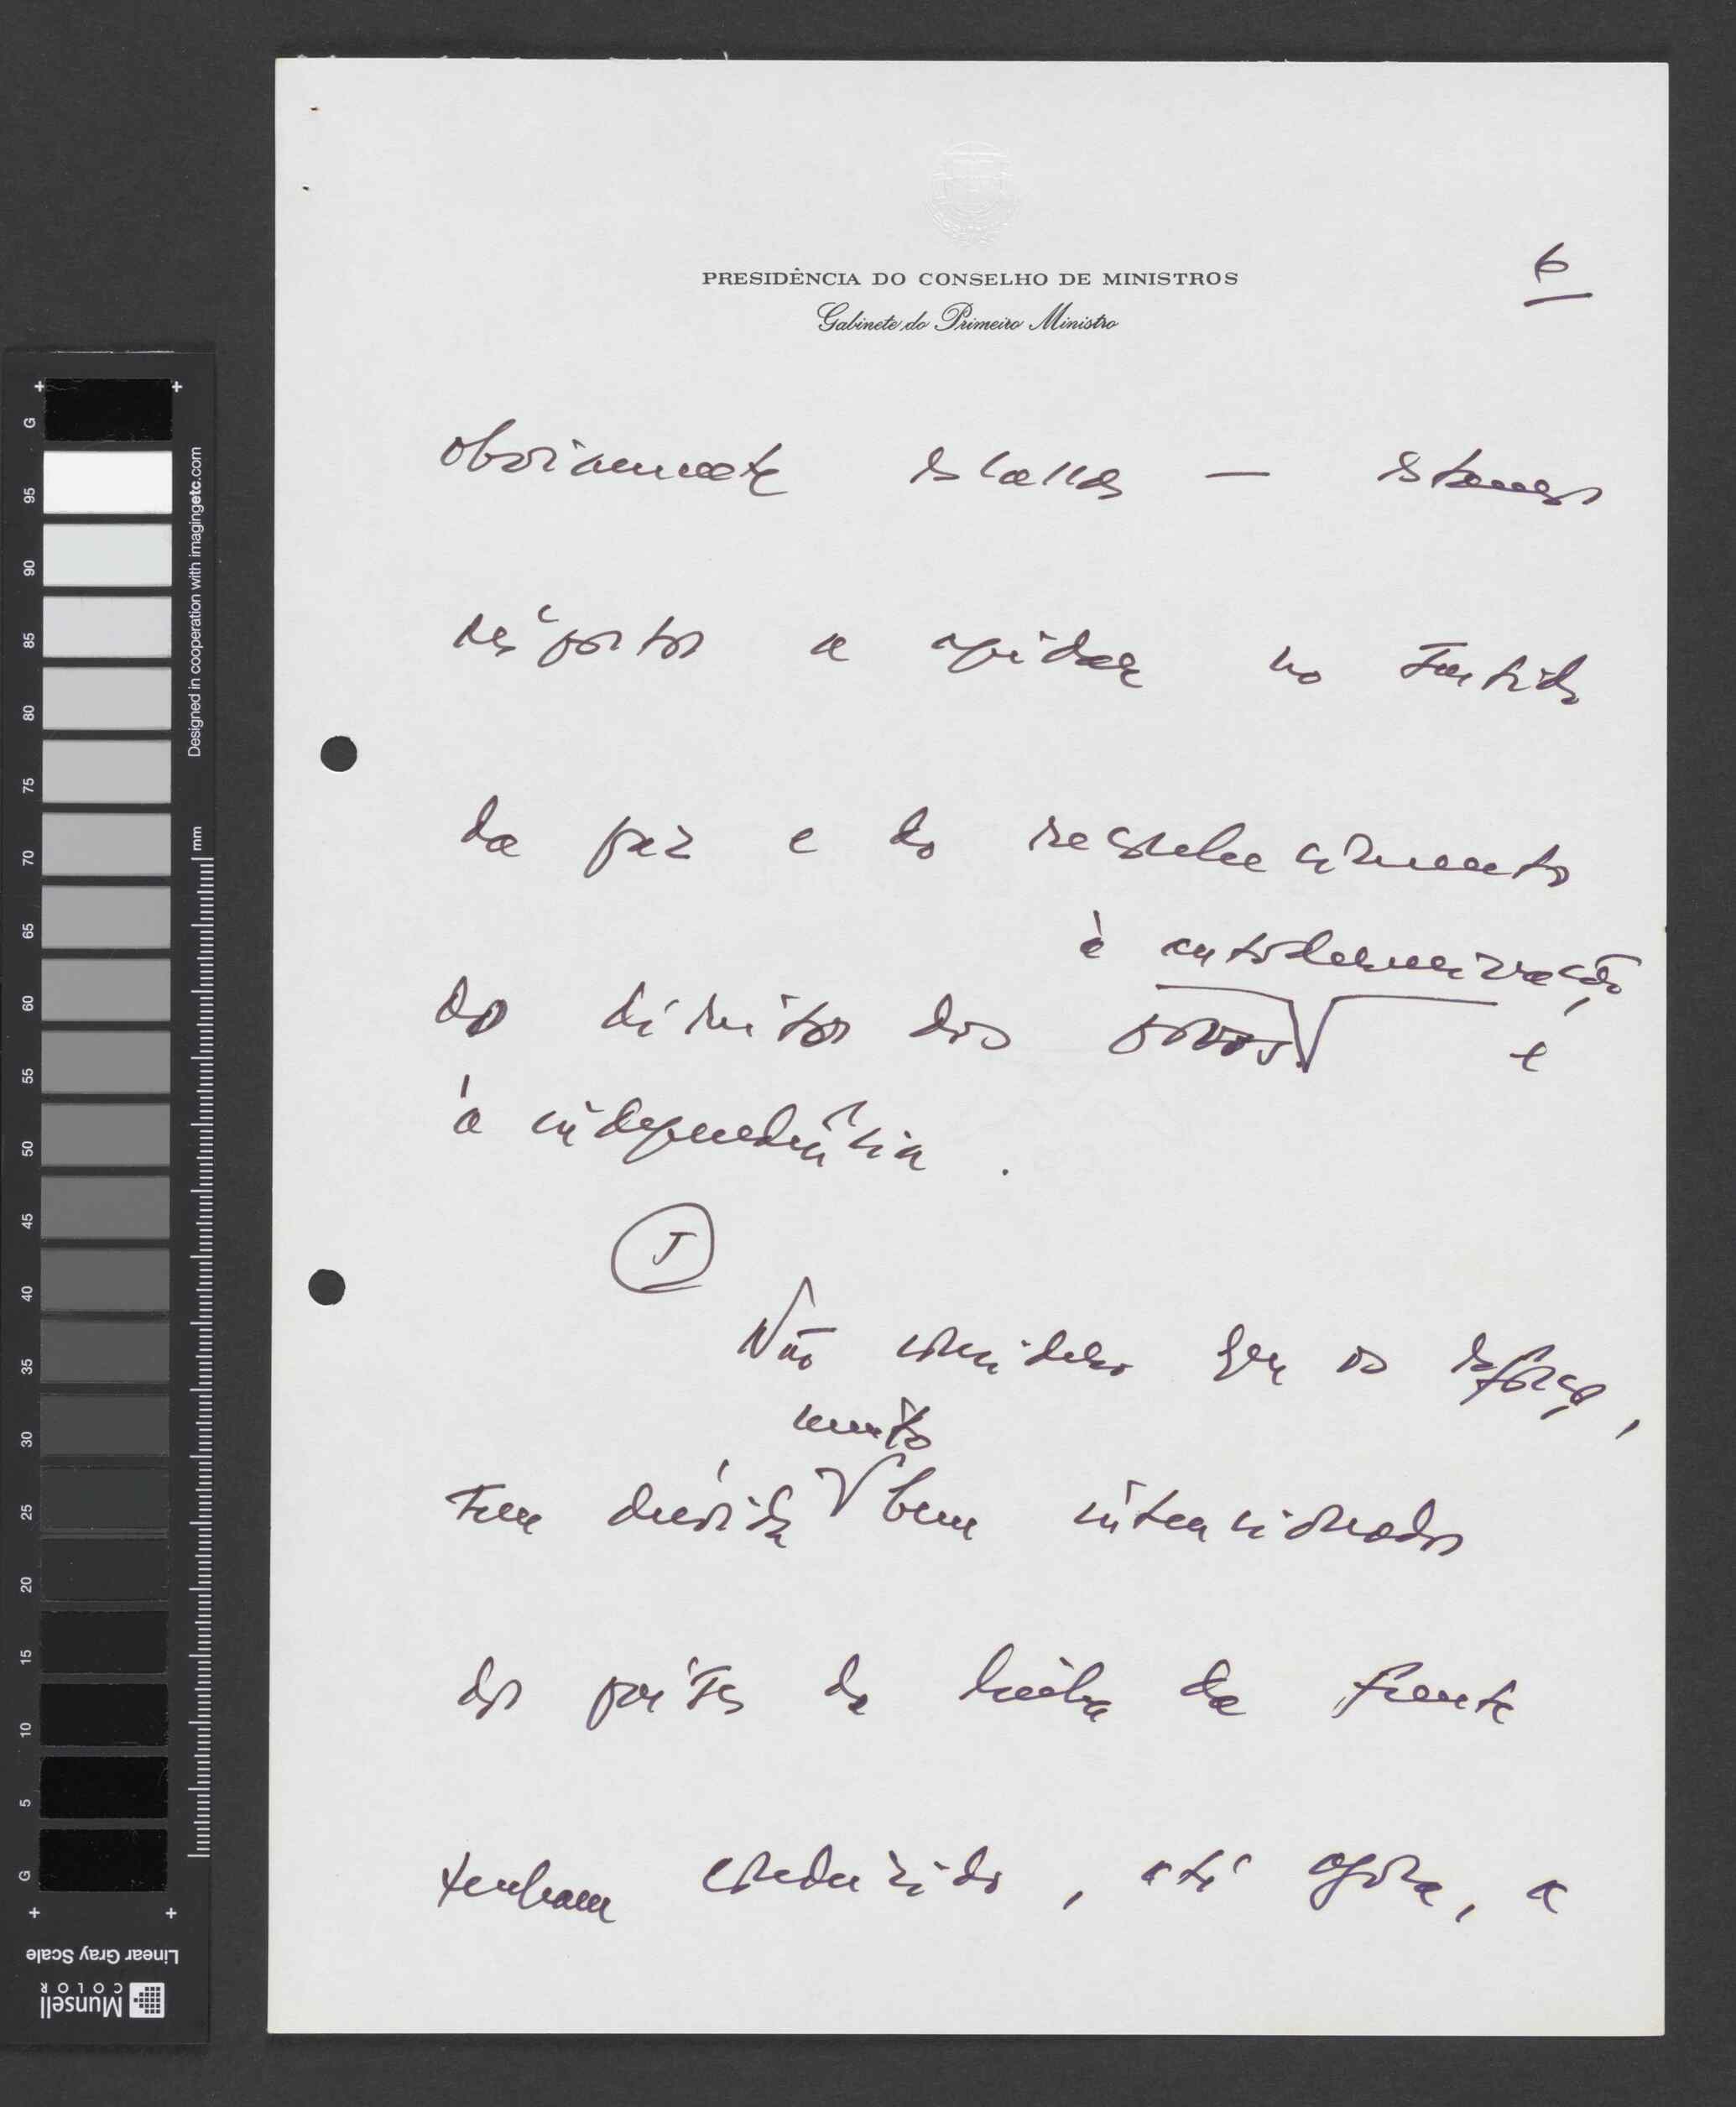 PRESIDÊNCIA DO CONSELHO DE MINISTROS
Gabinete do Primeiro Ministro
6
obviamente escassos — estamos
dispostos a ajudar no sentido
da paz e do restabelecimento
à autodeterminação
do direitos dos povos e
à independência.
5
Não considero que os esforços,
muito
sem dúvida bem intencionados
dos países da linha da frente
tenham conduzido, até agora, a
G 95 90 85 80 75 70 65 60 55 50 45 40 35 30 25 20 15 10 5 G
Designed in cooperation with imagingetc.com
mm
Linear Gray Scale
Munsell
COLOR